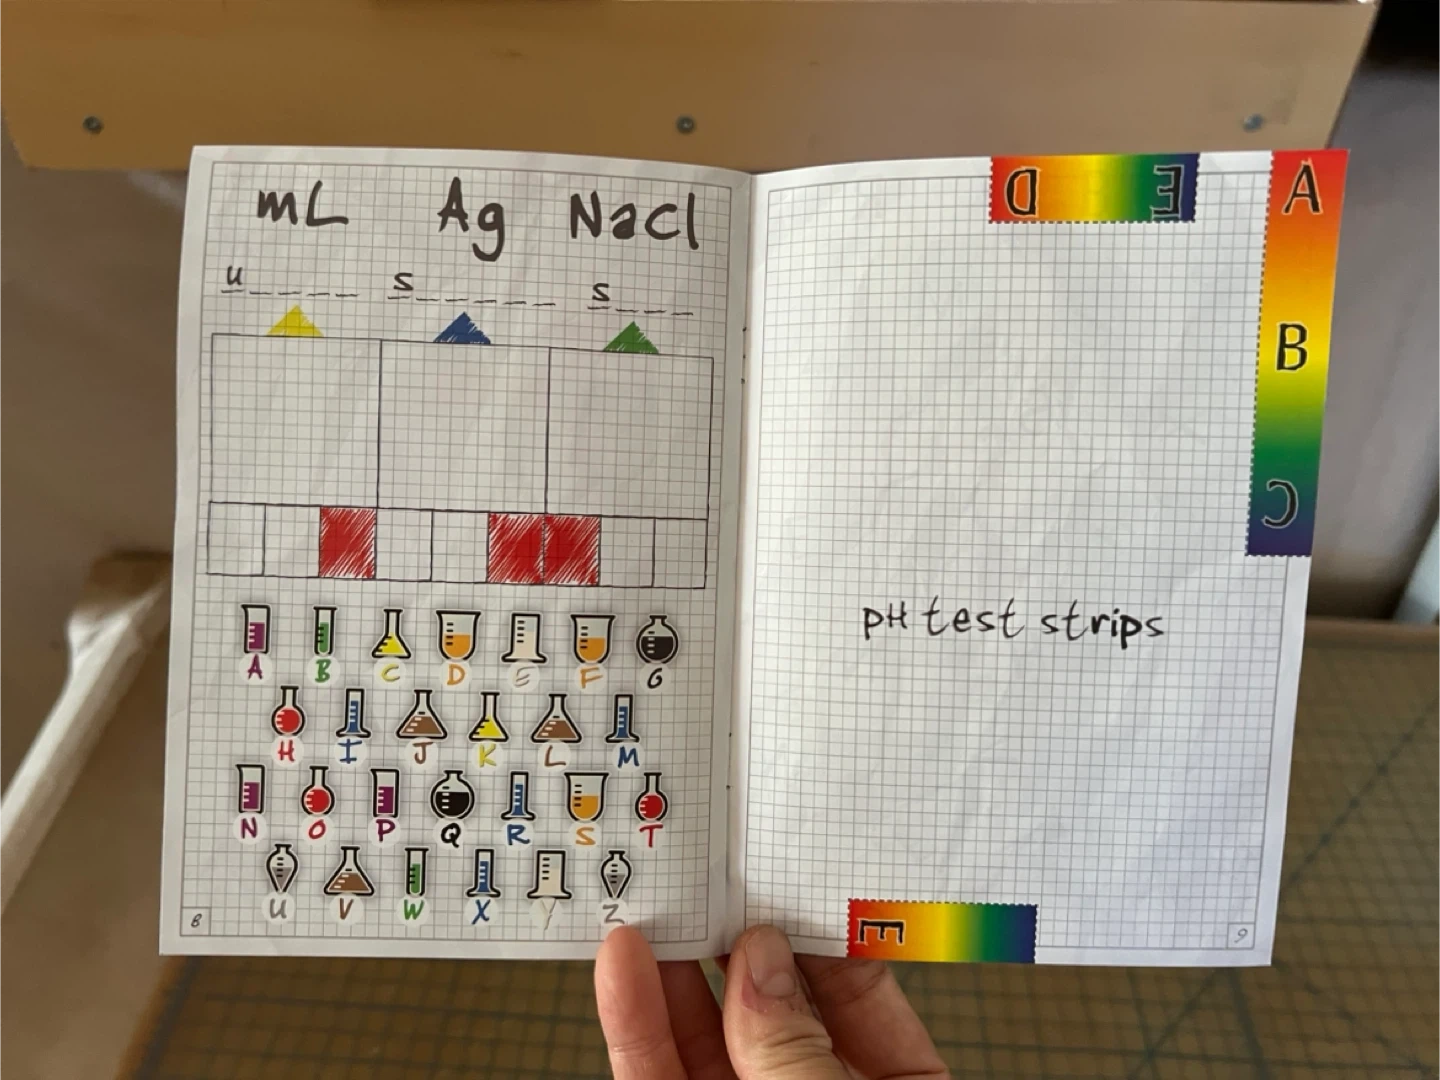 mL Ag Nacl
u_ _ _ _ s_ _ _ _ _ s_ _ _
A B C D E F G
H I J K L M
N O P Q R S T
U V W X Y Z
8
D E
A
B
C
pH test strips
E
9